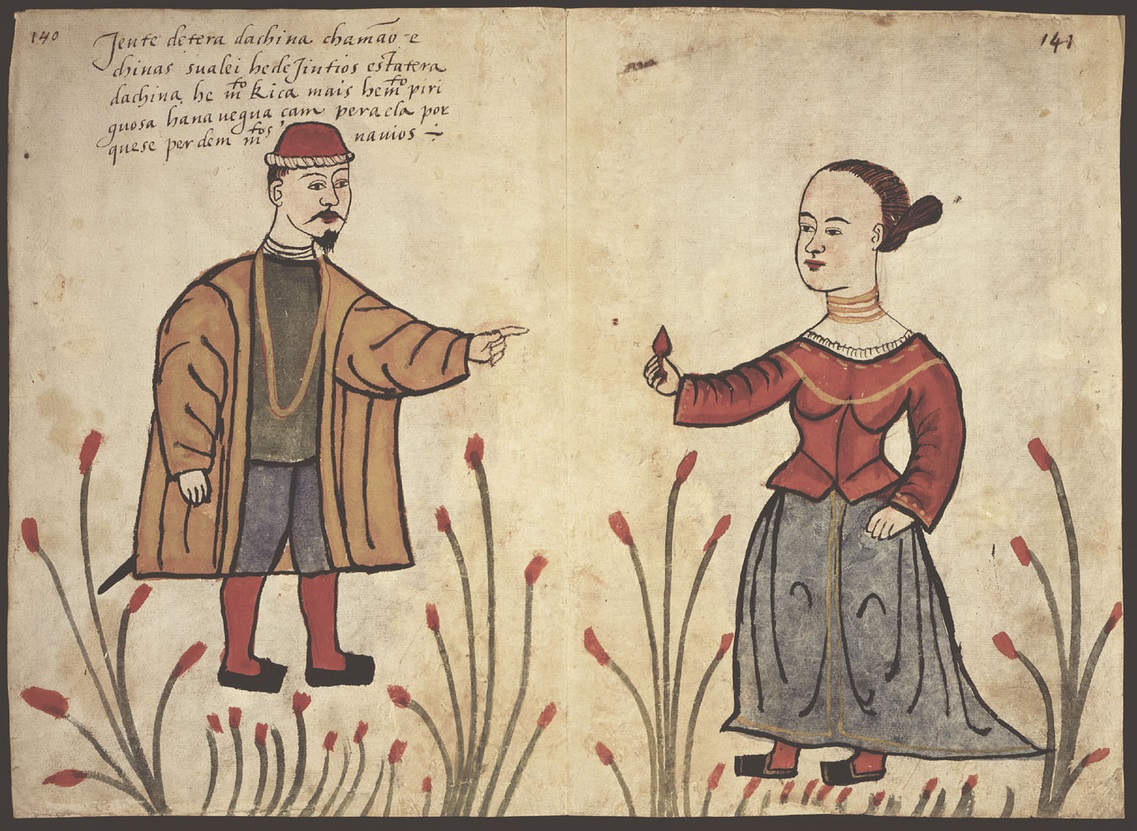 140
Jente detera dachina chamão e
chinas sualei hedeJintios estatera
dachina he mto Rica mais hemto piri
guosa hanaveguacam peraela por
quese perdem mtos navios ÷
141